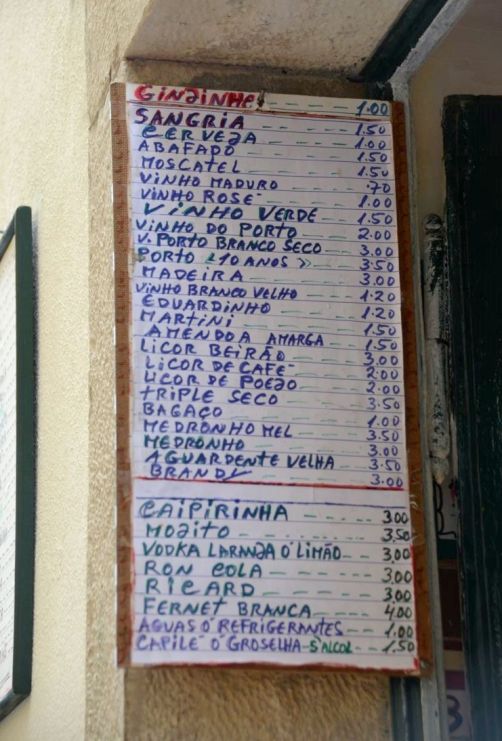 GINJINHA - - - - - 1.00
SANGRIA - - - - - 1.50
CERVEJA - - - - - 1.00
ABAFADO - - - - - 1.50
MOSCATEL - - - - - 1.50
VINHO MADURO - - - - .70
VINHO ROSÉ - - - - - 1.00
VINHO VERDE - - - 1.50
VINHO DO PORTO - - - 2.00
V. PORTO BRANCO SECO - - 3.00
PORTO "10 ANOS" - - - 3.50
MADEIRA - - - - - 3.00
VINHO BRANCO VELHO - - - 1.20
EDUARDINHO - - - - 1.20
MARTINI - - - - - 1.50
AMENDOA AMARGA - - - 1.50
LICOR BEIRÃO - - - - 3.00
LICOR DE CAFÉ - - - - 2.00
LICOR DE POEJO - - - - 2.00
TRIPLE SECO - - - - 3.50
BAGAÇO - - - - - 1.00
MEDRONHO MEL - - - - 3.50
MEDRONHO - - - - - 3.00
AGUARDENTE VELHA - - 3.50
BRANDY - - - - - 3.00
CAIPIRINHA - - - - 3.00
MOJITO - - - - - 3.50
VODKA LARANJA O' LIMÃO - - 3.00
RON COLA - - - - - 3.00
RICARD - - - - - 3.00
FERNET BRANCA - - - 4.00
AGUAS O' REFRIGERANTES - - 1.00
CAPILÉ O' GROSELHA - S'ALCOL - 1.50